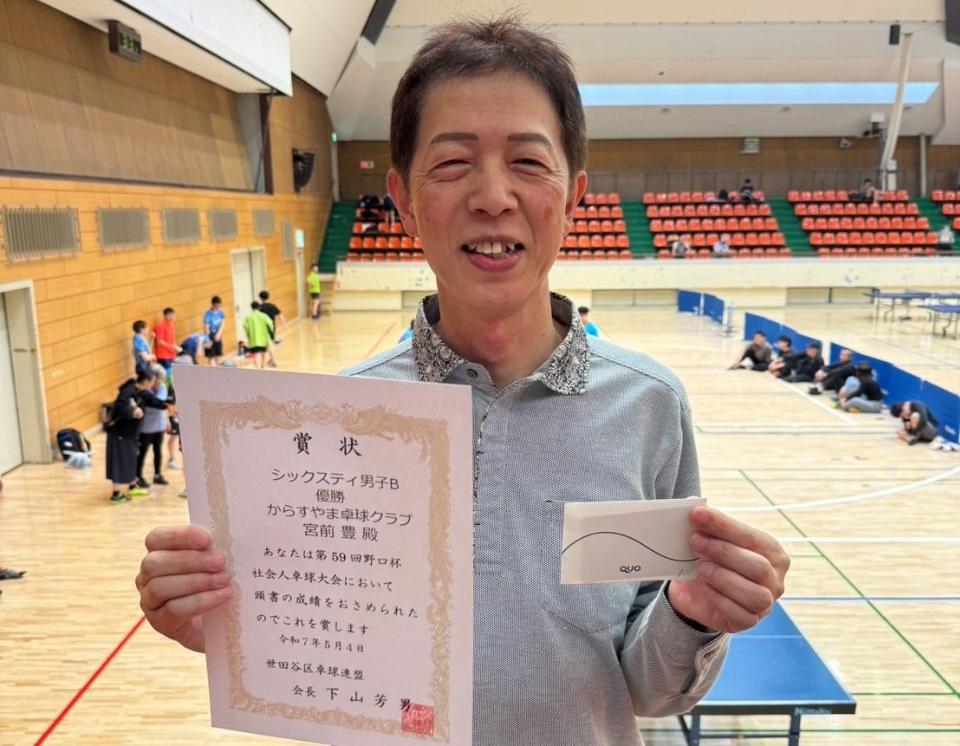 賞状
シックスティ男子B
優勝
からすやま卓球クラブ
宮前 豊 殿
あなたは第59回野口杯
社会人卓球大会において
頭書の成績をおさめられた
のでこれを賞します
令和7年5月4日
世田谷区卓球連盟
会長 下山芳男
QUO
Nittaku